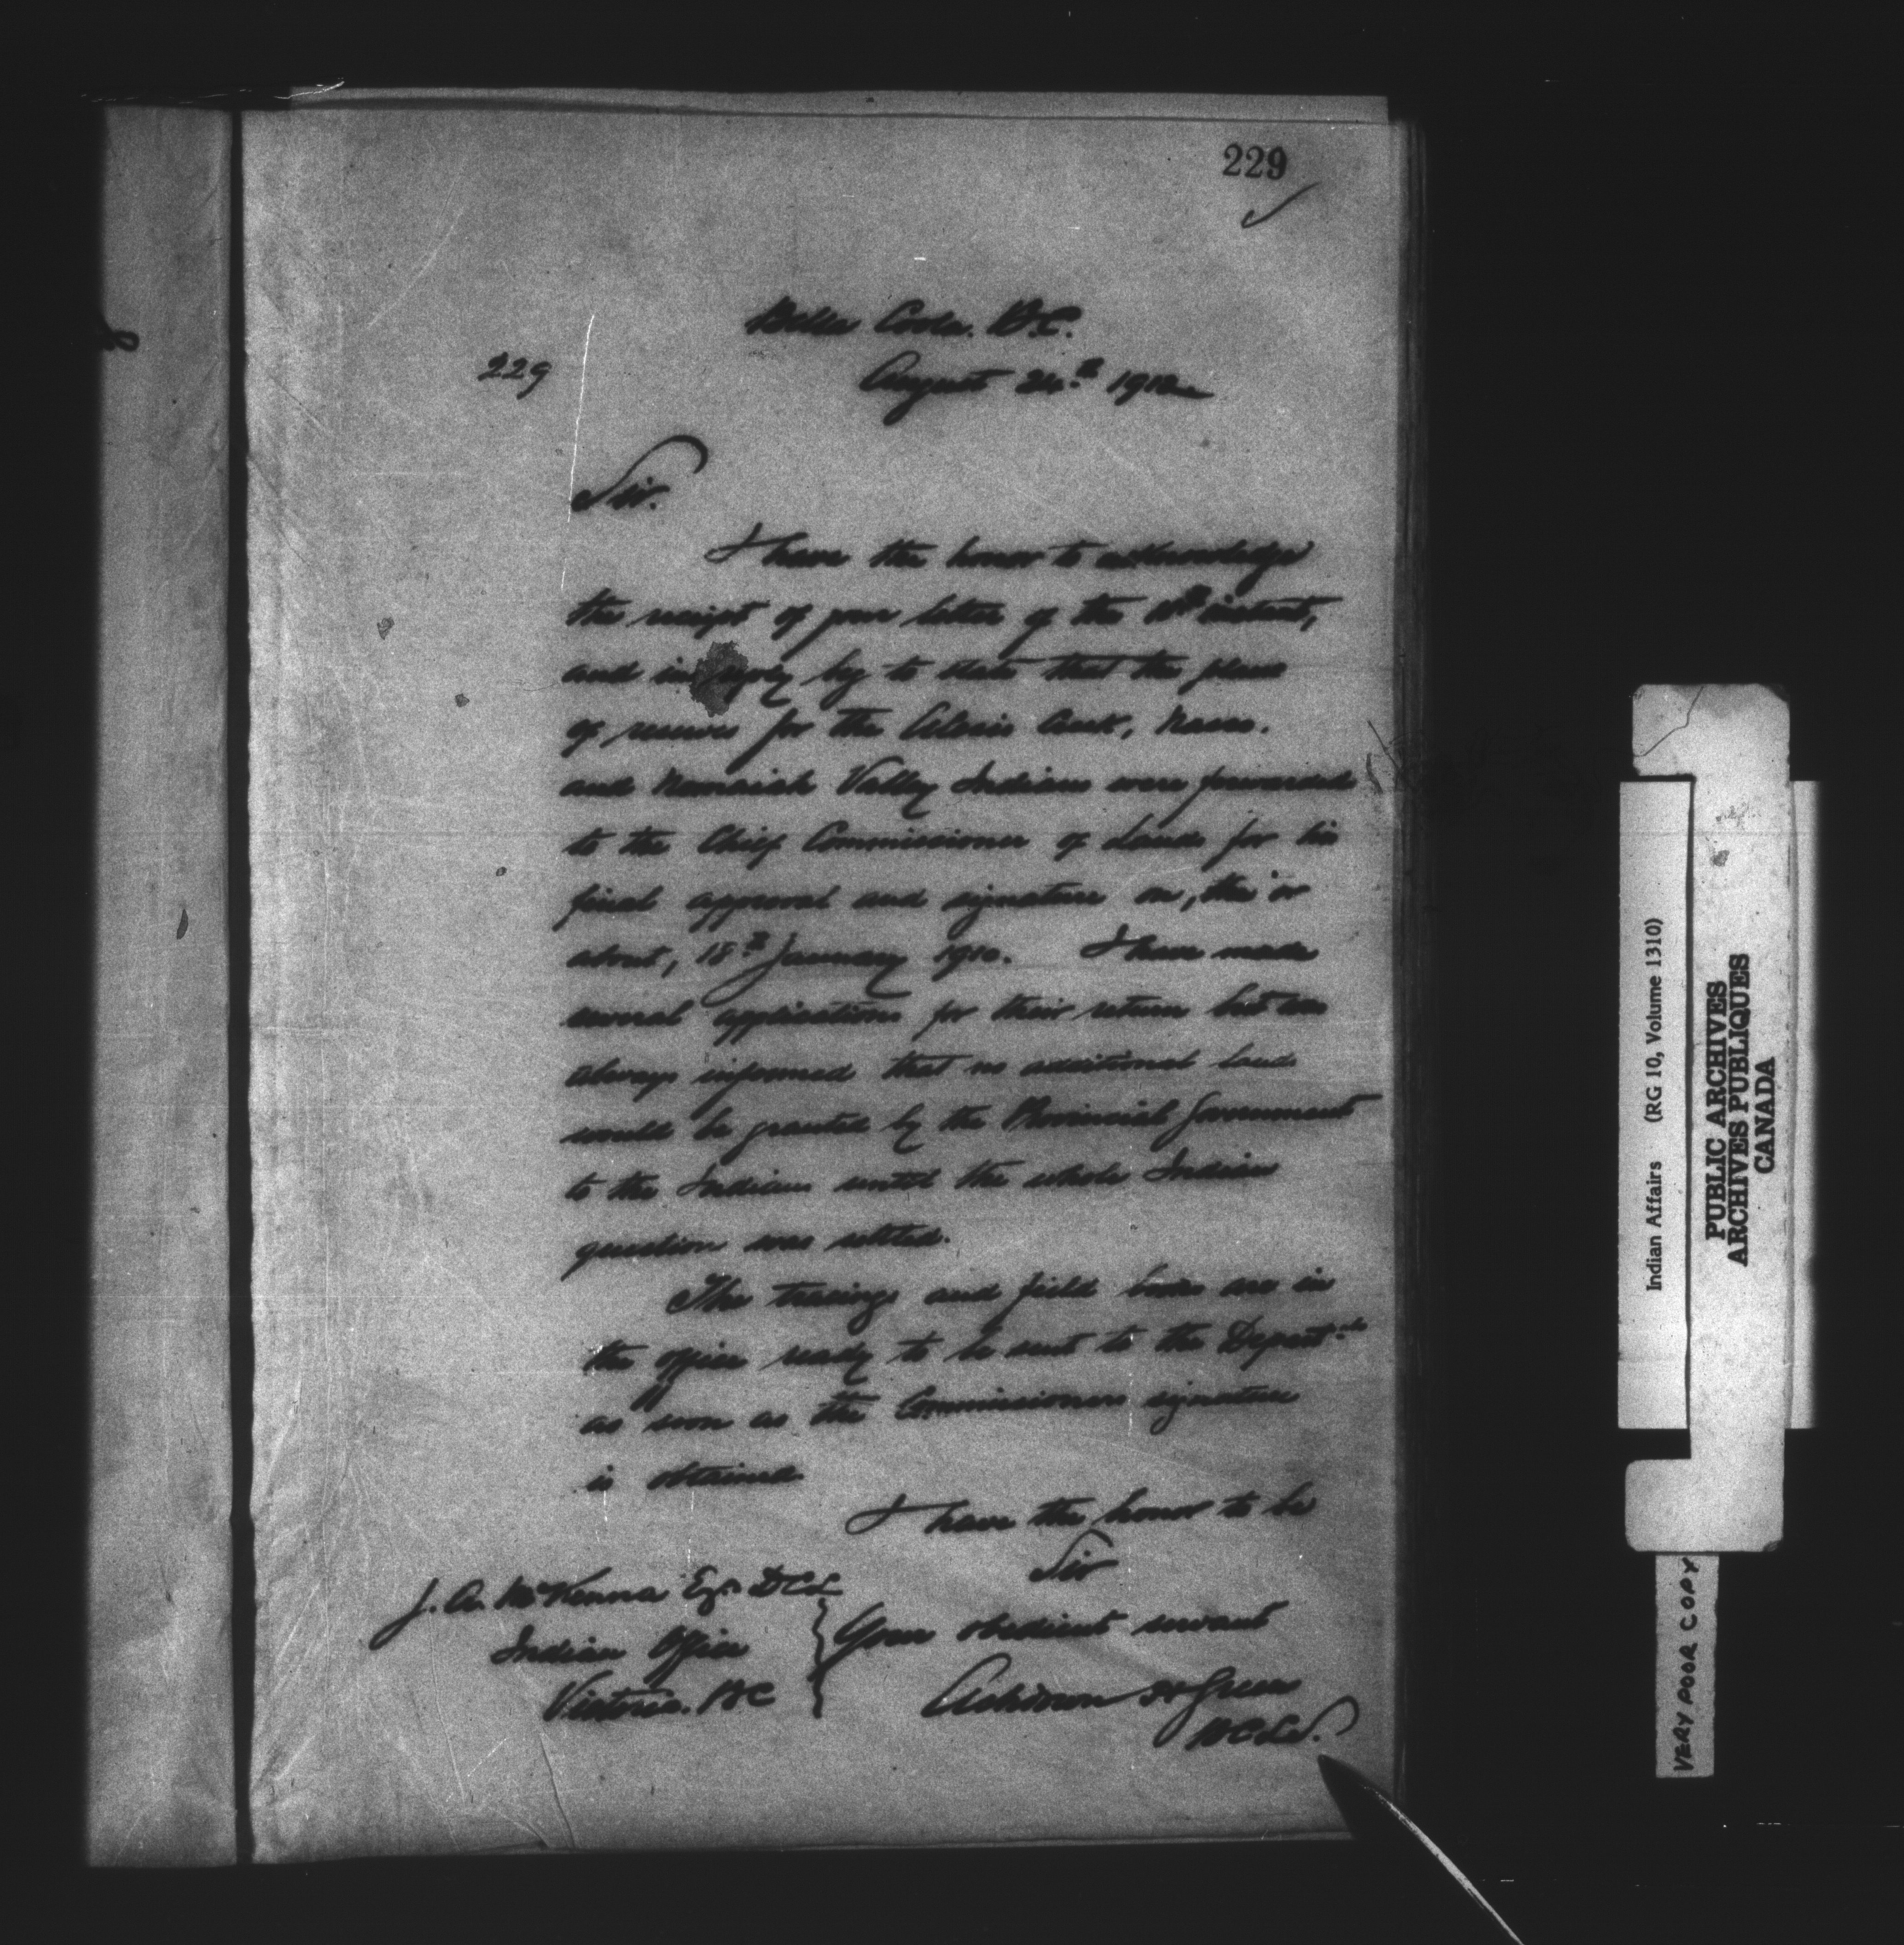 229
Bella Coola. B.C.
229
August 24th 1912
Sir.
I have the honor to acknowledge
the receipt of your letter of the instant,
and in reply beg to state that the plans
of reserves for the Alexis Creek,
and Nemaiah Valley Indians were forwarded
to the Chief Commissioner of Lands for his
final approval and signature on, the or
about, 18th January 1910. I have made
several applications for their return but am
always informed that no additional land
would be granted by the Provincial Government
to the Indians until the whole Indian
question was settled.
The tracings and field books are in
the office ready to be sent to the
as soon as the Commissioners signature
is obtained
I have the honor to be
Sir
Your obedient servant
Ashdown H Green
BCLS.
J. A. McKenna Esq. DCL
Indian Office
Victoria. BC
Indian Affairs (RG 10, Volume 1310)
PUBLIC ARCHIVES
ARCHIVES PUBLIQUES
CANADA
VERY POOR COPY